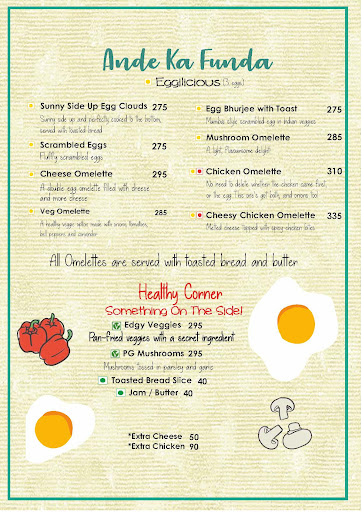 Ande Ka Funda
Eggilicious (3 eggs)
Sunny Side Up Egg Clouds 275
Sunny side up and perfectly cooked to the bottom,
served with toasted bread
Scrambled Eggs 275
Fluffy scrambled eggs
Cheese Omelette 295
A double egg omelette filled with cheese
and more cheese
Veg Omelette 285
A healthy veggie option made with onions, tomatoes,
bell peppers and coriander
Egg Bhurjee with Toast 275
Mumbai style scrambled egg in indian veggies
Mushroom Omelette 285
A light, flavoursome delight
Chicken Omelette 310
No need to debate whether the chicken came first,
or the egg. This one's got both, and onions too!
Cheesy Chicken Omelette 335
Melted cheese topped with spicy chicken bites
All Omelettes are served with toasted bread and butter
Healthy Corner
Something On The Side!
Edgy Veggies 295
Pan-fried veggies with a secret ingredient
PG Mushrooms 295
Mushrooms tossed in parsley and garlic
Toasted Bread Slice 40
Jam / Butter 40
*Extra Cheese 50
*Extra Chicken 90